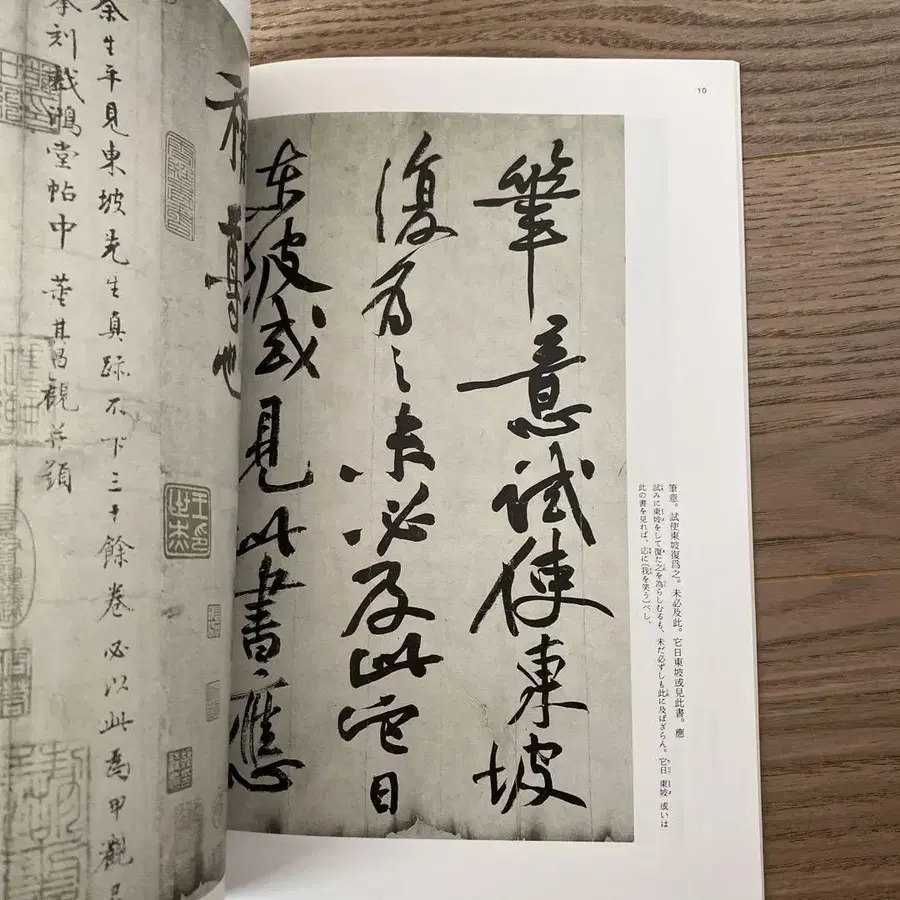 10
筆意試使東坡
復為之未必及此它日
東坡或見此書應
筆意。試使東坡復爲之。未必及此。它日東坡或見此書。應
試みに東坡をして復た之を為らしむるも、未だ必ずしも此に及ばざらん。它日 東坡 或いは
此の書を見れば、応に〔我を笑う〕べし、
尊也
余生平見東坡先生真跡不下三十餘卷必以此為甲觀已
摹刻戲鴻堂帖中 董其昌觀并題